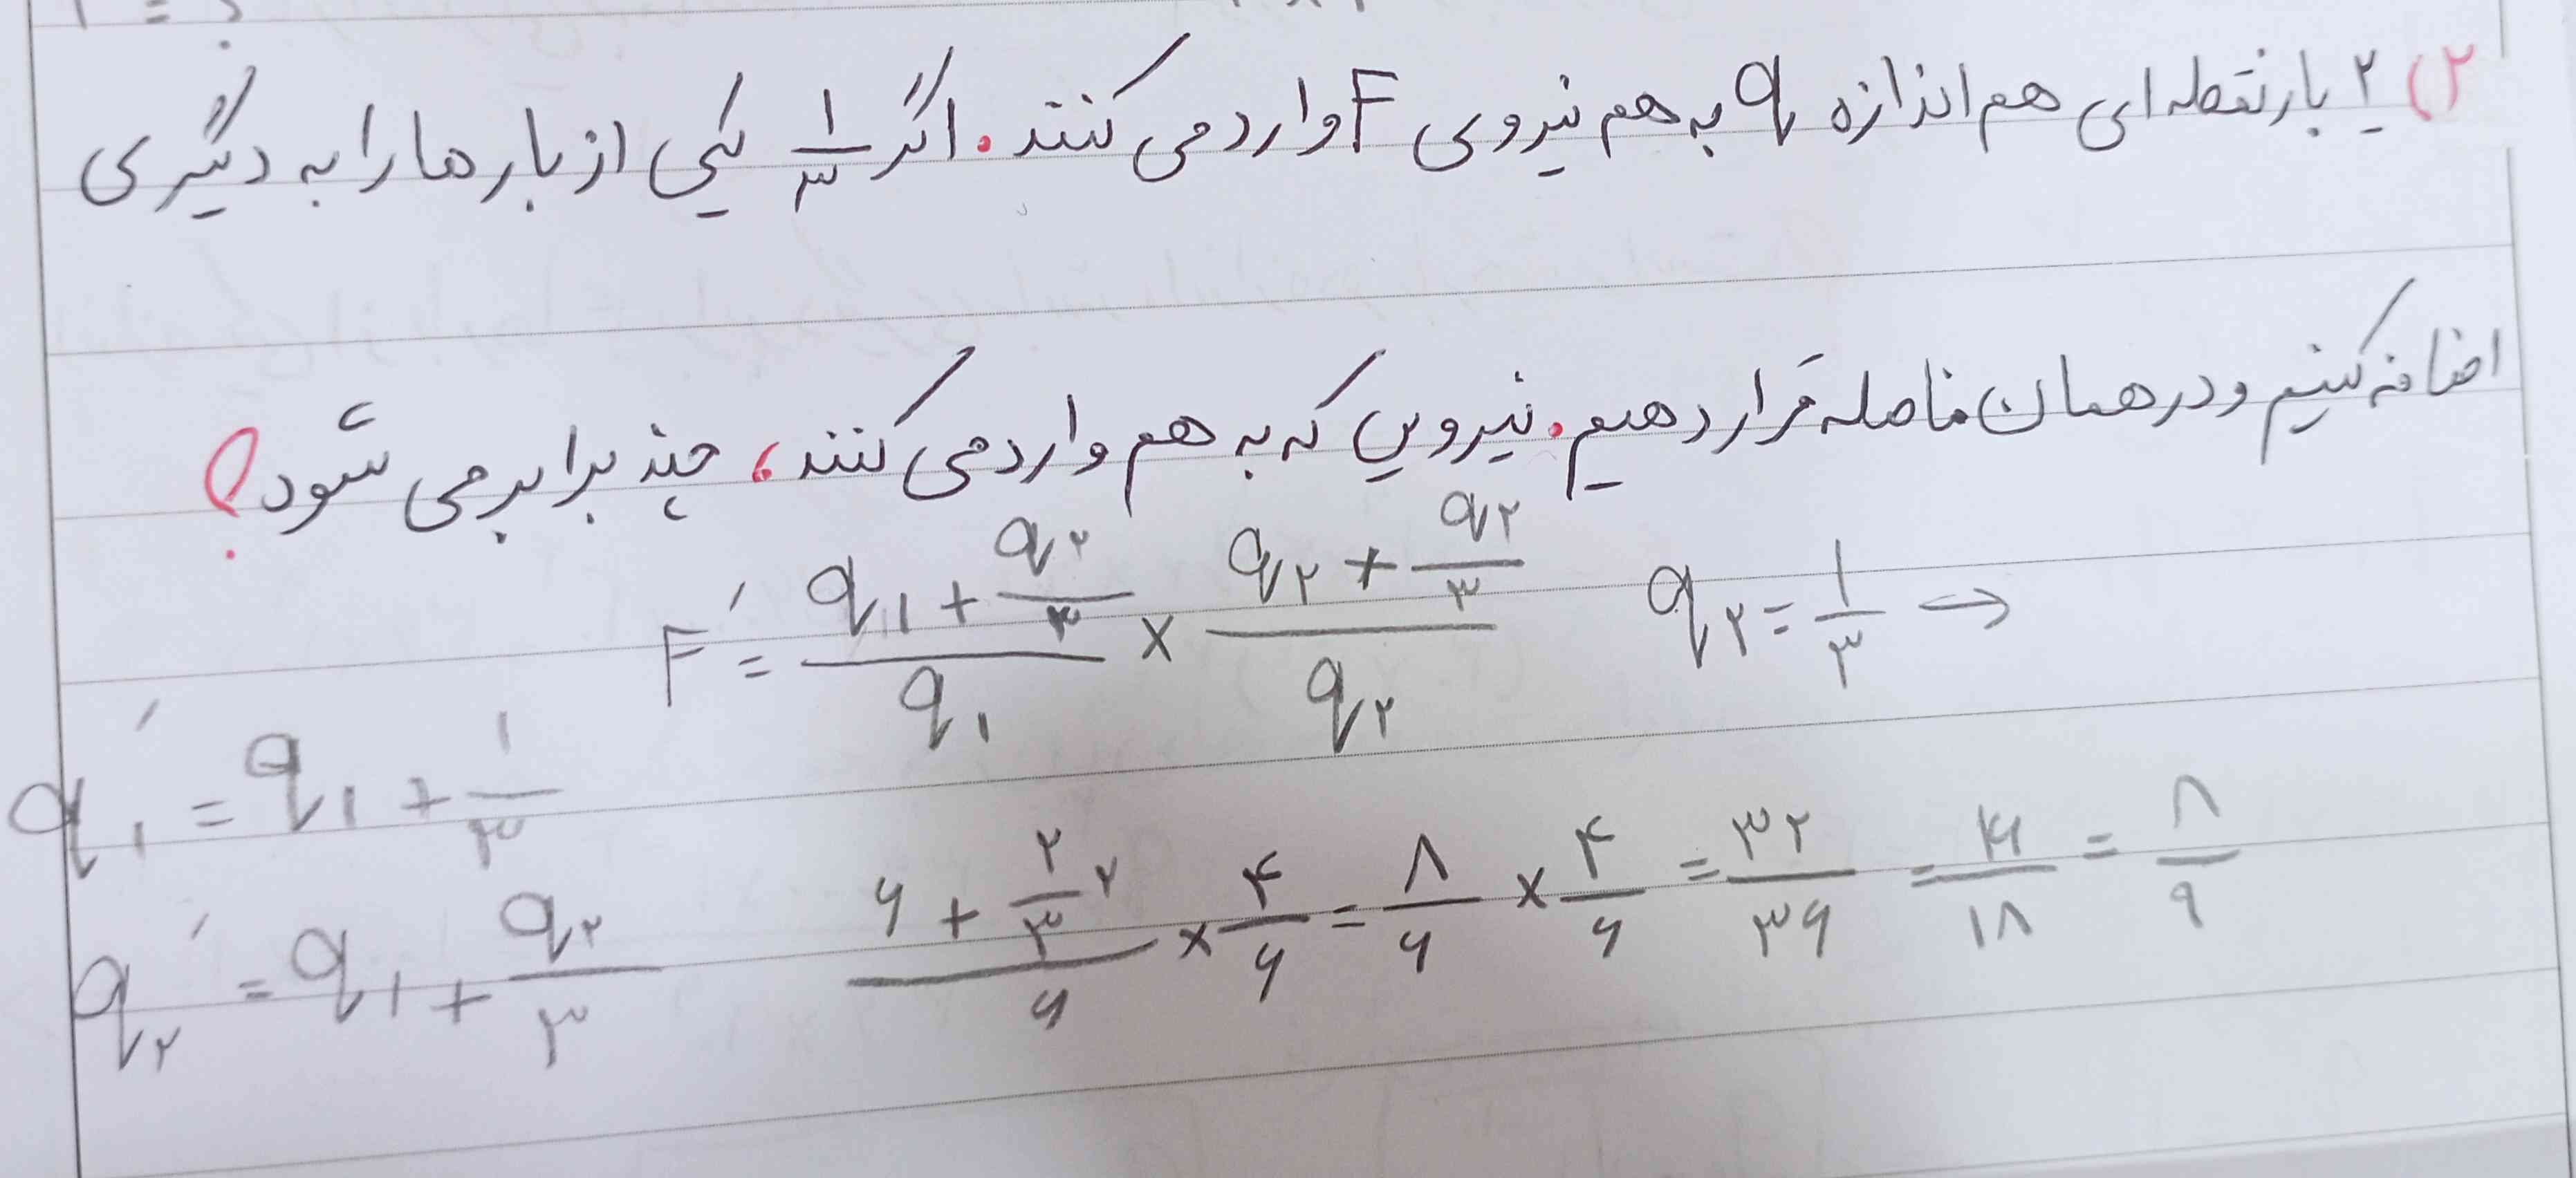 ۲) ۲ بار نقطه ای هم اندازه q به هم نیروی F وارد می کنند. اگر ۱/۳ یکی از بار ها را به دیگری
اضافه کنیم و در همان فاصله قرار دهیم. نیرویی که به هم وارد می کنند، چند برابر می شود؟
F′ = (q۱ + q۲/۳)/q۱ × (q۲ + q۲/۳)/q۲    q۲ = ۱/۳ →
q′۱ = q۱ + ۱/۳
(۶ + ۲/۳ ۲)/۶ × ۴/۶ = ۸/۶ × ۴/۶ = ۳۲/۳۶ = ۱۶/۱۸ = ۸/۹
q′۲ = q۱ + q۲/۳